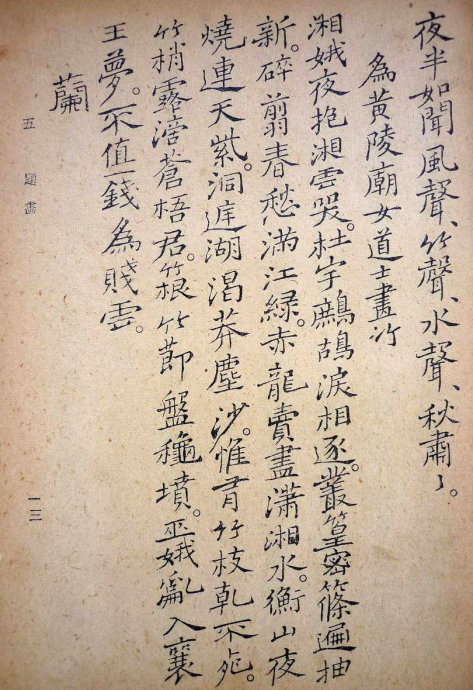 夜半如聞風聲、竹聲、水聲、秋肅々。
為黃陵廟女道士畫竹
湘娥夜抱湘雲哭。杜宇鷓鴣淚相逐。叢篁密篠遍抽
新。碎翦春愁滿江綠。赤龍賣盡瀟湘水。衡山夜
燒連天紫。洞庭湖渴莽塵沙。惟有竹枝乾不死。
竹梢露滴蒼梧君。竹根竹節盤龝墳。巫娥亂入襄
王夢。不值一錢為賤雲。
蘭
五 題畫 一三